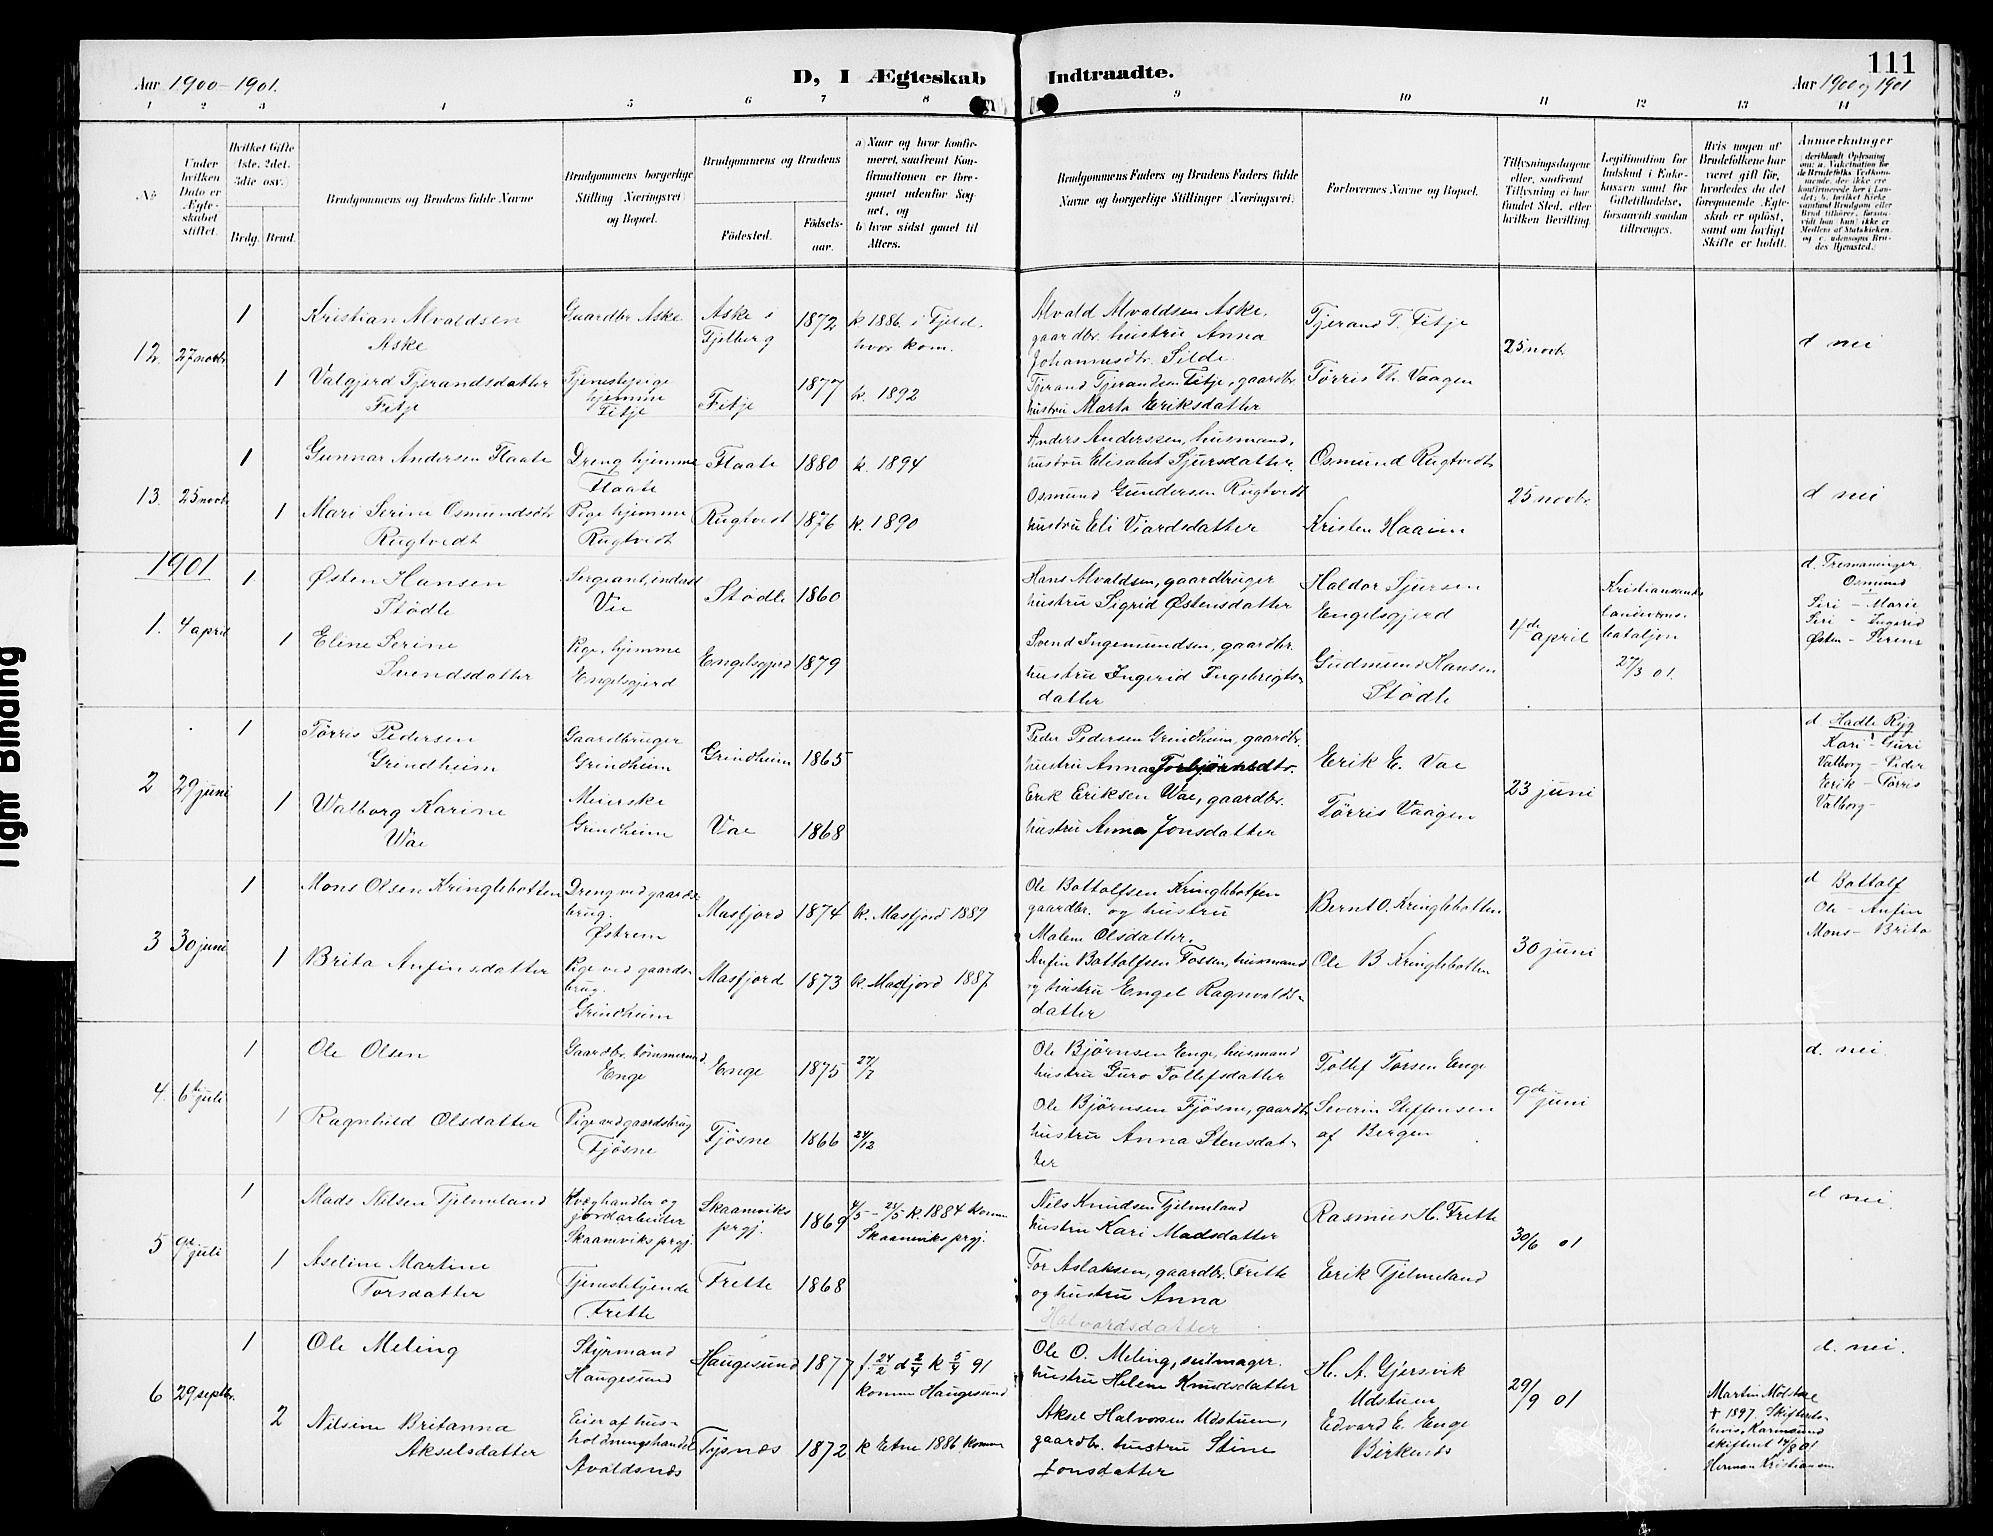 111
Aar 1900-1901.
D, I Ægteskab Indtraadte.
Aar 1900 og 1901
1 2 3 4 5 6 7 8 9 10 11 12 13 14
No
Under hvilken Dato er Ægteskabet stiftet.
Hvilket Gifte 1ste, 2det, 3die osv.
Brdg. Brud.
Brudgommens og Brudens fulde Navne
Brudgommens borgerlige Stilling (Næringsvei) og Bopæl.
Brudgommens og Brudens
Födested.
Födselsaar.
a) Naar og hvor konfirmeret, saafremt Konfirmationen er foregaaet udenfor Sognet, og
b) hvor sidst gaaet til Alters.
Brudgommens Faders og Brudens Faders fulde Navne og borgerlige Stillinger (Næringsvei)
Forlovernes Navne og Bopæl.
Tillysningsdagene eller, saafremt Tillysning ei har fundet Sted, efter hvilken Bevilling.
Legitimation for Indskud i Enkekassen samt for Giftetilladelse, forsaavidt saadan tiltrænges.
Hvis nogen af Brudefolkene har været gift før, hvorledes da det foregaaende Ægteskab er oplöst, samt om lovligt Skifte er holdt.
Anmærkninger
12. 27 novbr
1 Kristian Alvaldsen Aske
Gaardbr Aske
Aske i Fjelberg
1872
k. 1886. i Fjeld. hvor kom.
Alvald Alvaldsen Aske.
gaardbr. hustru Anna
Johannesdtr. Silde.
Tjerand T. Fitje
25 novbr.
d nei
1 Valgjerd Tjerandsdatter Fitje
Tjenestepige hjemme Fitje
Fitje
1877
k. 1892
Tjerand Tjerandsen Fitje, gaardbr.
hustru Marta Eriksdatter
Törris Th. Vaagen
13. 25 novbr
1 Gunnar Andersen Flaate
Dreng hjemme Flaate
Flaate
1880
k. 1894
Anders Anderssen, husmand,
hustru Elisabet Sjursdatter.
Osmund Rugtvedt
25 novbr.
d nei
1 Mari Serine Osmundsdtr Rugtvedt
Pige hjemme Rugtvedt
Rugtvedt
1876
k. 1890
Osmund Gundersen Rugtvedt
hustru Eli Viardsdatter
Kristen Haaim
1901
1. 4 april
1 Østen Hansen Stödle
Sergeant, inderst Vie
Stödle
1860
Hans Alvaldsen, gaardbruger
hustru Sigrid Østensdatter
Haldor Sjursen Engelsgjerd
4de april
Kristiansands
bataljon
27/3 01.
d. Tremæninger
Osmund
Siri - Marie
Siri - Ingerid
Østen - Serene
1 Eline Serine Svendsdatter
Pige, hjemme Engelsgjerd
Engelsgjerd
1879
Svend Ingemundsen, gaardbr.
hustru Ingerid Ingebrigtsdatter
Gudmund Hansen Stödle
2 29 juni
1 Törris Pedersen Grindheim
Gaardbruger Grindheim
Grindheim
1865
Peder Pedersen Grindheim, gaardbr.
hustru Anna Torbjörnsdtr.
Erik E. Vae
23 juni
d Hadle Ryg
Kari - Guri
Valborg - Peder
Erik - Törris
Valborg -
1 Walborg Karine Wae
Meierske Grindheim
Vae
1868
Erik Eriksen Wae, gaardbr.
hustru Anna Jonsdatter
Törris Vaagen
3 30 juni
1 Mons Olsen Kringlebotten
Dreng ved gaardsbrug. Østrem
Masfjord
1874
k. Masfjord 1889
Ole Battolfsen Kringlebotten
gaardbr. og hustru
Malene Olsdatter.
Bernt O. Kringlebotten
30 juni
d Battolf
Ole - Anfin
Mons - Brita
1 Brita Anfinsdatter
Pige ved gaardsbrug. Grindheim
Masfjord
1873
k. Masfjord 1887
Anfin Battolfsen Fossen, husmand
og hustru Engel Ragnvaldsdatter
Ole B Kringlebotten
4. 6te juli
1 Ole Olsen
Gaardbr. tömmermd. Enge
Enge
1875
27/7
Ole Björnsen Enge, husmand
hustru Guro Tollefsdatter
Tollef Torsen Enge
9de juni
d. nei.
1 Ragnhild Olsdatter
Pige ved gaardsbrug Fjösne
Fjösne
1866
24/12
Ole Björnsen Fjösne, gaardbr
hustru Anna Stensdatter
Severin Steffensen af Bergen
5 9de juli
1 Mads Nilsen Tjelmeland
Kvæghandler og jordarbeider Skaanviks prgj.
Skaanviks prgj.
1869
k. 1884 komm Skaanviks prgj.
Nils Knudsen Tjelmeland
hustru Kari Madsdatter
Rasmus H. Frette
30/6 01
d nei.
1 Aseline Martine Torsdatter
Tjenestetjende Frette
Frette
1868
Tor Aslaksen, gaardbr. Frette
og hustru Anna
Halvordsdatter
Erik Tjelmeland
6 29 septbr.
1 Ole Meling
Styrmand Haugesund
Haugesund
1877
f. 24/2 d 2/4 k 5/4 91
komm Haugesund
Ole O. Meling, seilmager.
hustru Helene Knudsdatter
H. A. Gjersvik Udstuen
29/9 01
d. nei.
2 Nilsine Britanna Akselsdatter
Eier af husholdningshandel Avaldsnæs
Tysnæs
1872
k Etne 1886. komm
Aksel Halvorsen Udstuen,
gaardbr. hustru Stine
Jonsdatter
Edvard E. Enge Birkenes
† 1897.
skiftet 14/8 01
Herman Kristiansen
Tight Binding